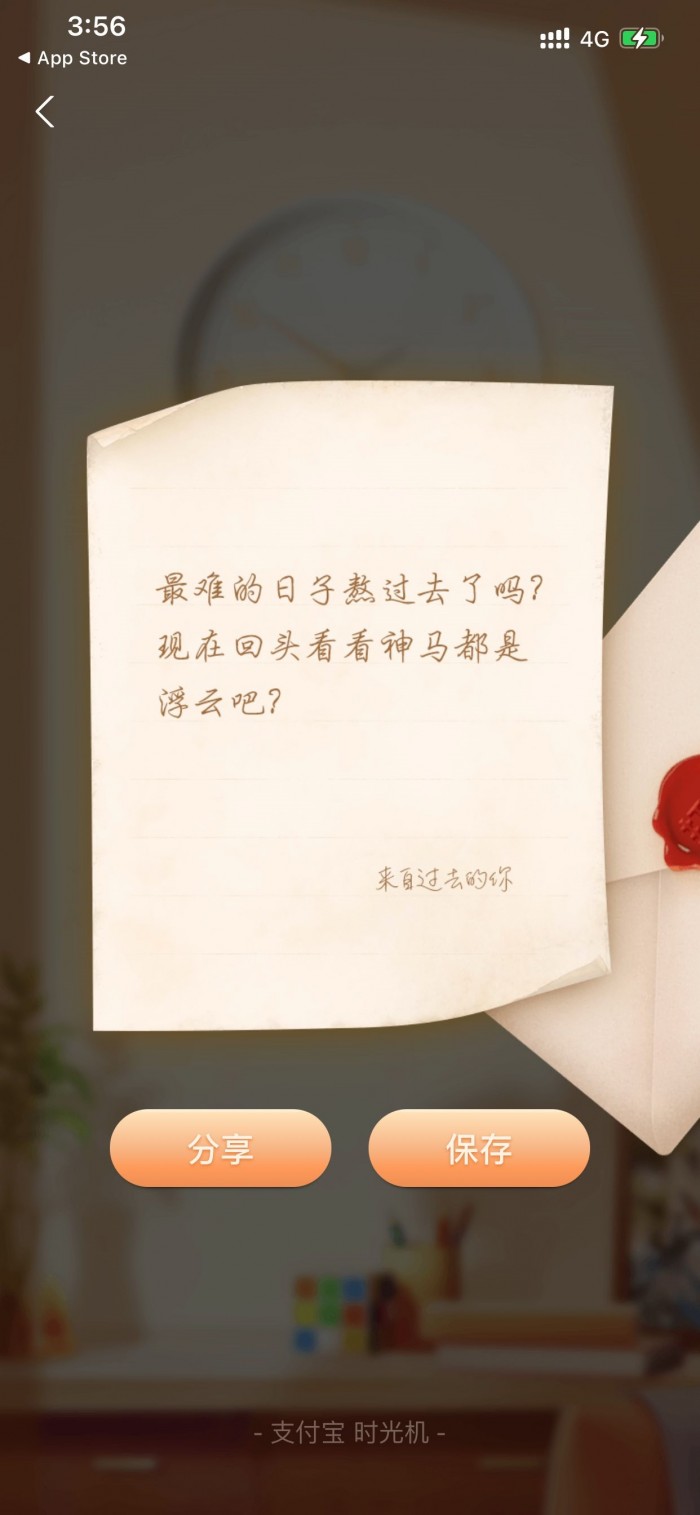 3:56
4G
◀ App Store
最难的日子熬过去了吗？
现在回头看看神马都是
浮云吧？
来自过去的你
分享
保存
- 支付宝 时光机 -